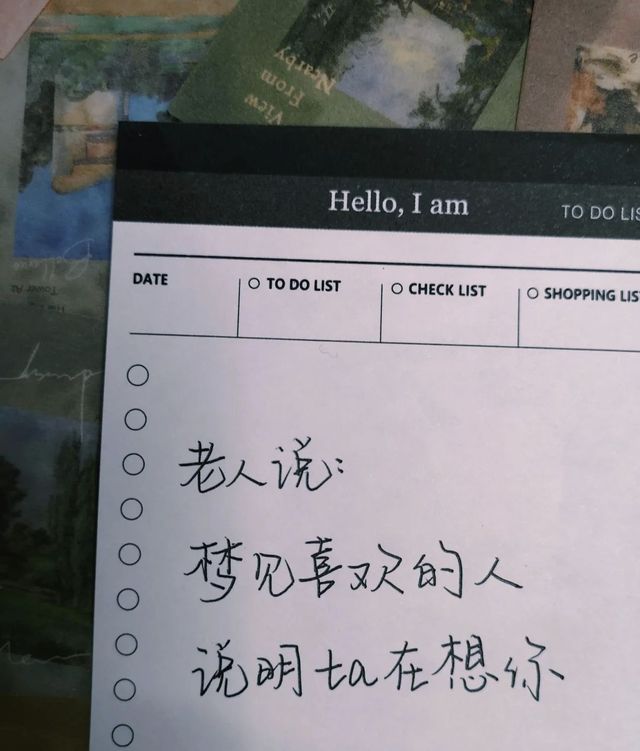 View
From
Nearby
Hello, I am
TO DO LIS
DATE
TO DO LIST
CHECK LIST
SHOPPING LIS
老人说:
梦见喜欢的人
说明ta在想你